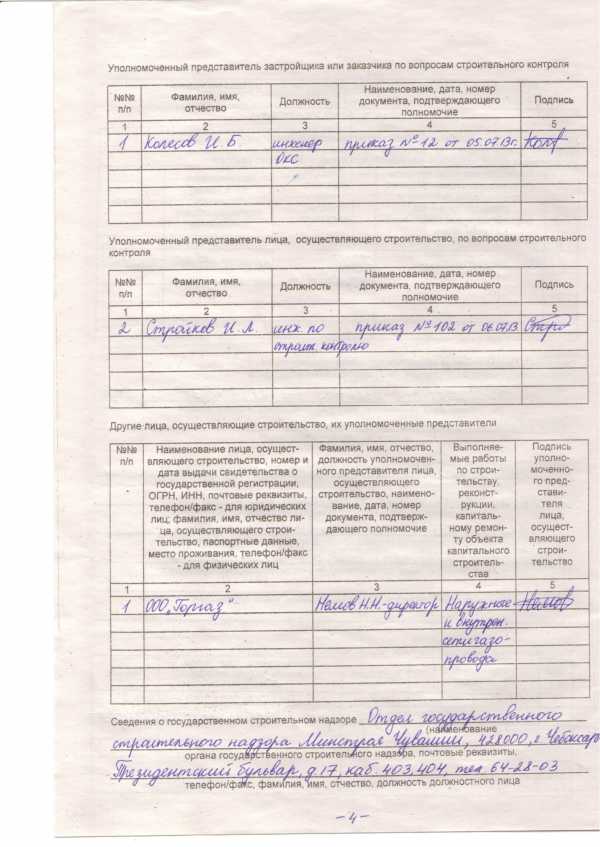 Уполномоченный представитель застройщика или заказчика по вопросам строительного контроля
№№ п/п
Фамилия, имя, отчество
Должность
Наименование, дата, номер документа, подтверждающего полномочие
Подпись
1 2 3 4 5
1 Колесов И. Б. инженер приказ № 12 от 05.07.13г.
ОКС
Уполномоченный представитель лица, осуществляющего строительство, по вопросам строительного
контроля
№№ п/п
Фамилия, имя, отчество
Должность
Наименование, дата, номер документа, подтверждающего полномочие
Подпись
1 2 3 4 5
2 Стройков И. А. инж. по приказ № 102 от 06.07.13
строит. контролю
Другие лица, осуществляющие строительство, их уполномоченные представители
№№
п/п
Наименование лица, осущест-
вляющего строительство, номер и
дата выдачи свидетельства о
государственной регистрации,
ОГРН, ИНН, почтовые реквизиты,
телефон/факс - для юридических
лиц; фамилия, имя, отчество ли-
ца, осуществляющего строи-
тельство, паспортные данные,
место проживания, телефон/факс
- для физических лиц
Фамилия, имя, отчество,
должность уполномочен-
ного представителя лица,
осуществляющего
строительство, наимено-
вание, дата, номер
документа, подтверж-
дающего полномочие
Выполняе-
мые работы
по строи-
тельству,
реконст-
рукции,
капиталь-
ному ремон-
ту объекта
капитального
строитель-
ства
Подпись
уполно-
моченно-
го пред-
стави-
теля
лица,
осущест-
вляющего
строи-
тельство
1 2 3 4 5
1 ООО „Горгаз" Немов Н.Н.-директор Наружные Немов
и внутрен.
сети газо-
провода
Сведения о государственном строительном надзоре Отдел государственного
(наименование
строительного надзора Минстроя Чувашии, 428000, г. Чебоксары
органа государственного строительного надзора, почтовые реквизиты,
Президентский бульвар, д. 17, каб. 403, 404, тел. 64-28-03
телефон/факс, фамилия, имя, отчество, должность должностного лица
-4-